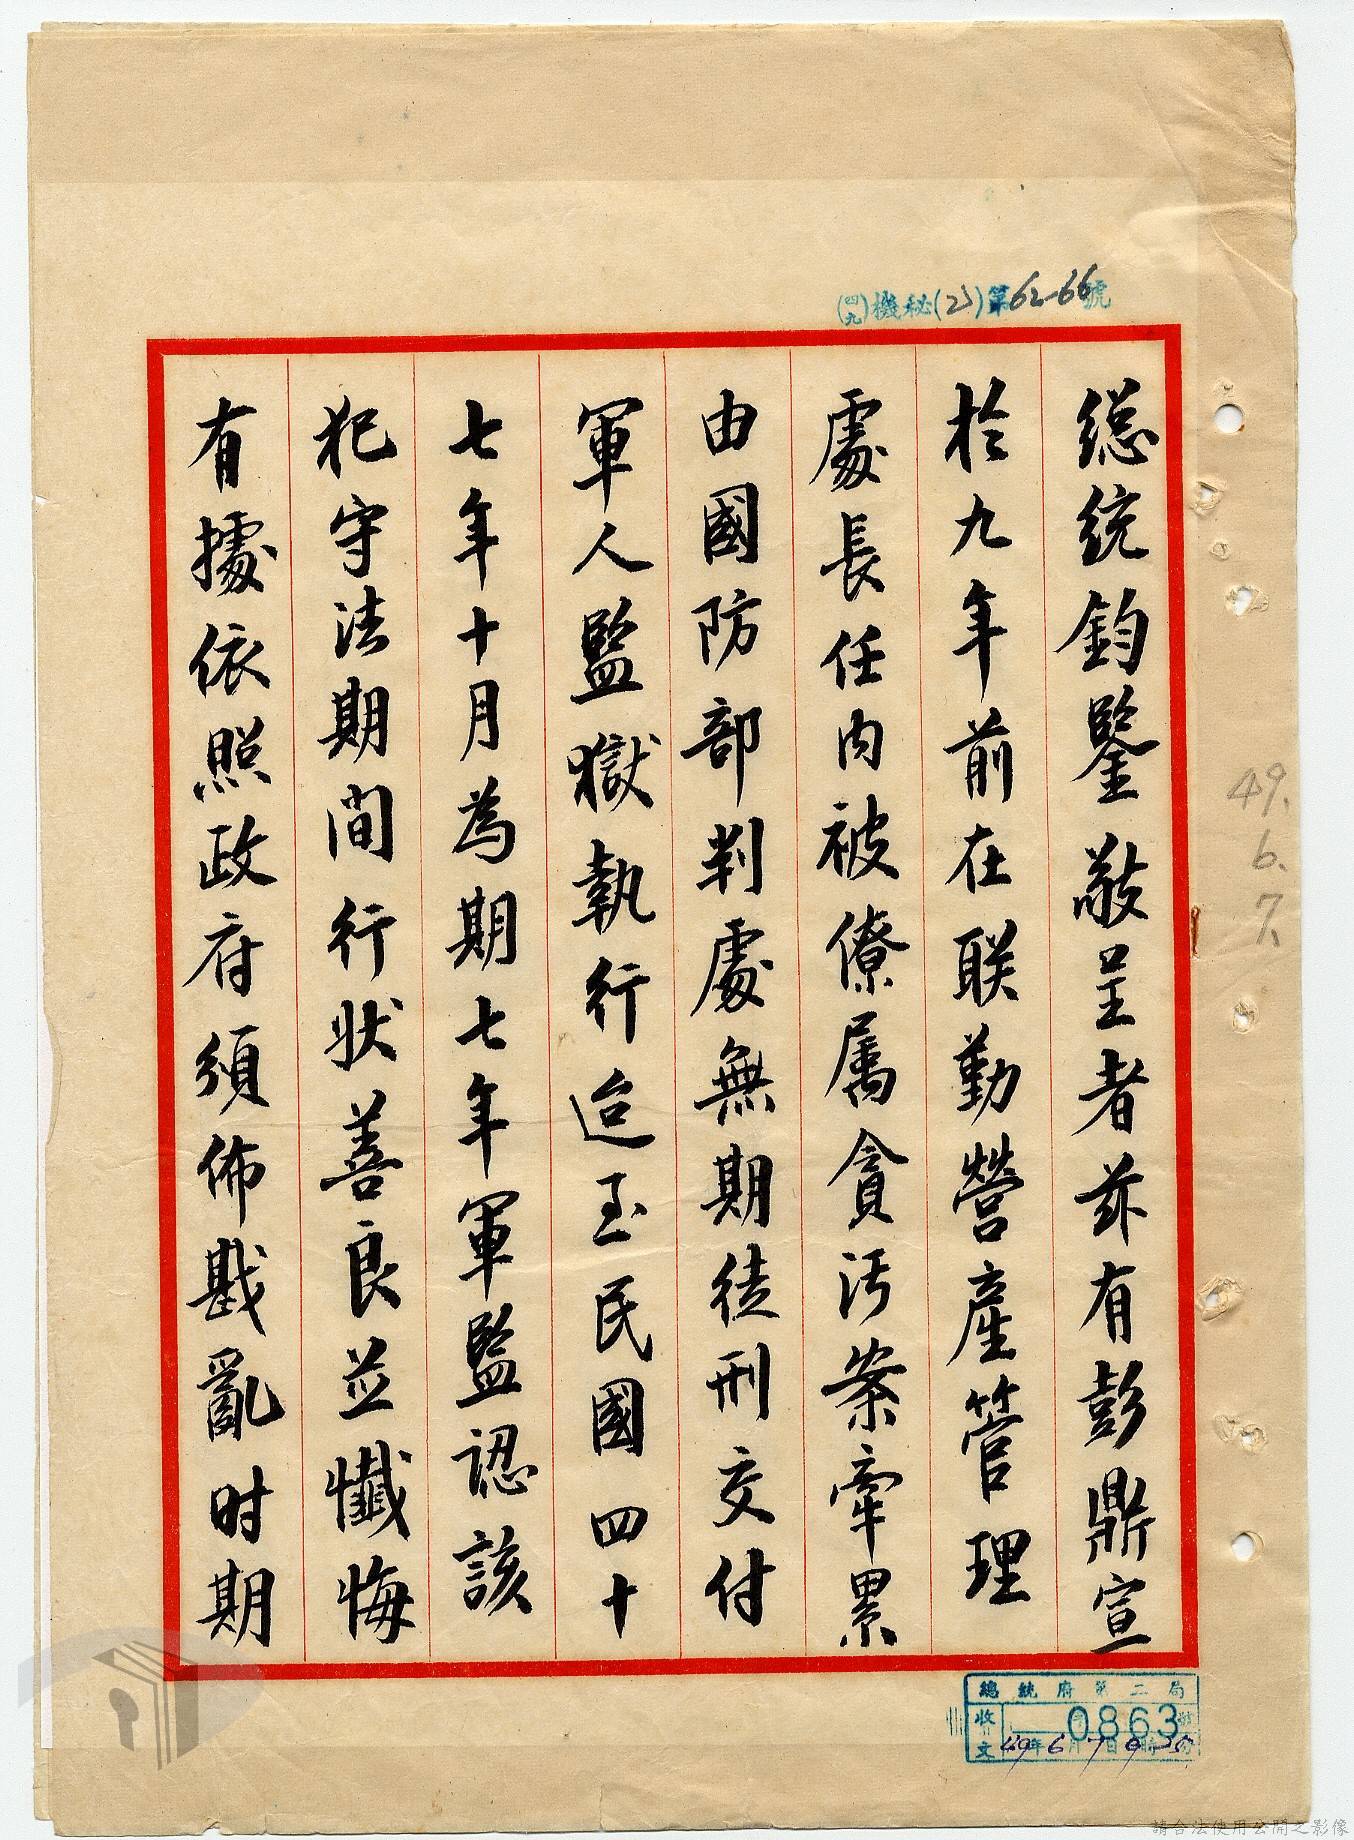 (四九)機秘(2)第62-66號
總統鈞鑒敬呈者茲有彭鼎宣
於九年前在联勤營產管理
處長任內被僚属貪污案牽累
由國防部判處無期徒刑交付
軍人監獄執行迨至民國四十
七年十月為期七年軍監認該
犯守法期間行狀善良並懺悔
有據依照政府頒佈戡亂时期
49.6.7.
總統府第二局
收文 0863號
49年6月7日9時
請合法使用公開之影像